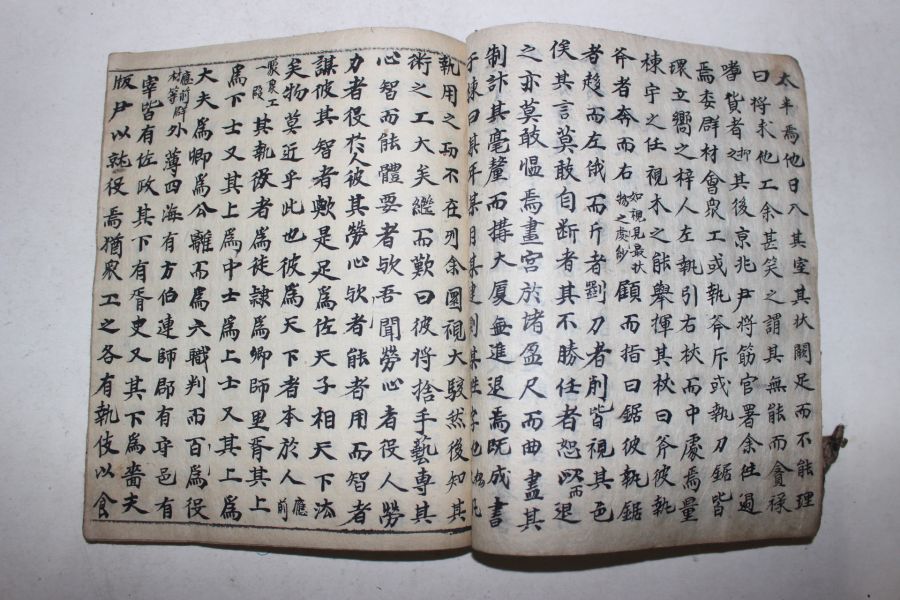 太半焉他日入其室其狀闕足而不能理
曰將求他工余甚笑之謂其無能而貪祿
嗜貨者之抑其後京兆尹將飭官署余往過
焉委群材會衆工或執斧斤或執刀鋸皆
環立嚮之梓人左執引右杖而中處焉量
棟宇之任視木之能舉揮其杖曰斧彼執
斧者奔而右如視見最狀物之處妙顧而指曰鋸彼執鋸
者趍而左俄而斤者劉刀者削皆視其色
俟其言莫敢自断者其不勝任者怒以而退
之亦莫敢慍焉畫宮於堵盈尺而曲盡其
制計其毫釐而搆大厦無進退焉既成書
于棟曰某年某月某建則其姓字也
執用之功不在列余圜視大駭然後知其
術之工大矣繼而歎曰彼將捨手藝專其
心智而能體要者欤吾聞勞心者役人勞
力者役於人彼其勞心欤者能者用而智者
謀彼其智者歟是足爲佐天子相天下法
矣物莫近乎此也彼爲天下者本於人應前
衆工一段其執役者爲徒隷爲卿師里胥其上
爲下士又其上爲中士爲上士又其上爲
大夫爲卿爲公離而爲六職判而百爲役
應前群材等外薄四海有方伯連師郡有守邑有
宰皆有佐政其下有胥史又其下爲嗇夫
版尹以就役焉猶衆工之各有執伎以食